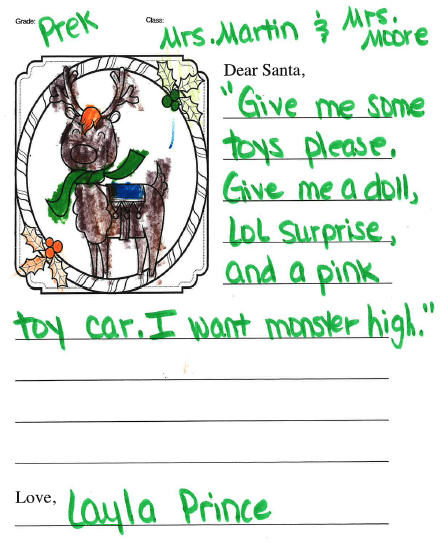 Grade: PreK Class: Mrs. Martin & Mrs. Moore
Dear Santa,
"Give me some
toys please.
Give me a doll,
LOL surprise,
and a pink
toy car. I want monster high."
Love, Layla Prince